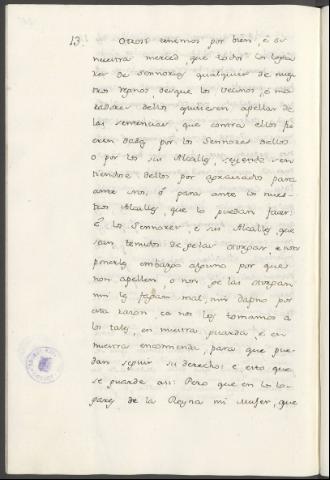 13. Otrosi tenemos por bien, é es
nuestra merced que todos los loga
res de Sennorios qualquier de nues
tros regnos desque los vecinos, é mo
radores dellos quisieren apellar de
las sentencias, que contra ellos fu
eren dadas por los Sennores dellos
o por los sus Alcalles, sejendo sen
tiendose dellos por agraviados para
ante nos, ó para ante los nues
tros Alcalles, que lo puedan facer:
é los Sennores, é sus Alcalles, que
sean tenudos de gelas otorgar, e non
ponerles embargo alguno por que
non apellen, o non ge las otorgan,
nin les fagan mal, nin dapno por
esta razon, ca nos los tomamos a
los tales, en nuestra guarda, é en
nuestra encomienda, para que pue
dan seguir su derecho: e esto que
se guarde asi: Pero que en los lo
gares de la Reyna mi Muger, que